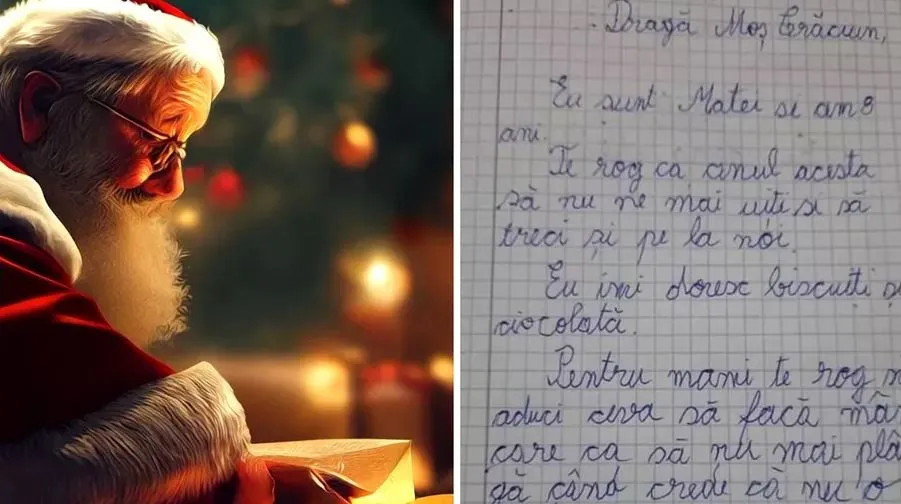 Dragă Moș Crăciun,
Eu sunt Matei si am 8
ani.
Te rog ca anul acesta
să nu ne mai uiti si să
treci și pe la noi.
Eu imi doresc biscuiți
ciocolată.
Pentru mami te rog
aduci ceva să facă mân
care ca să nu mai plân
gă când crede că nu o